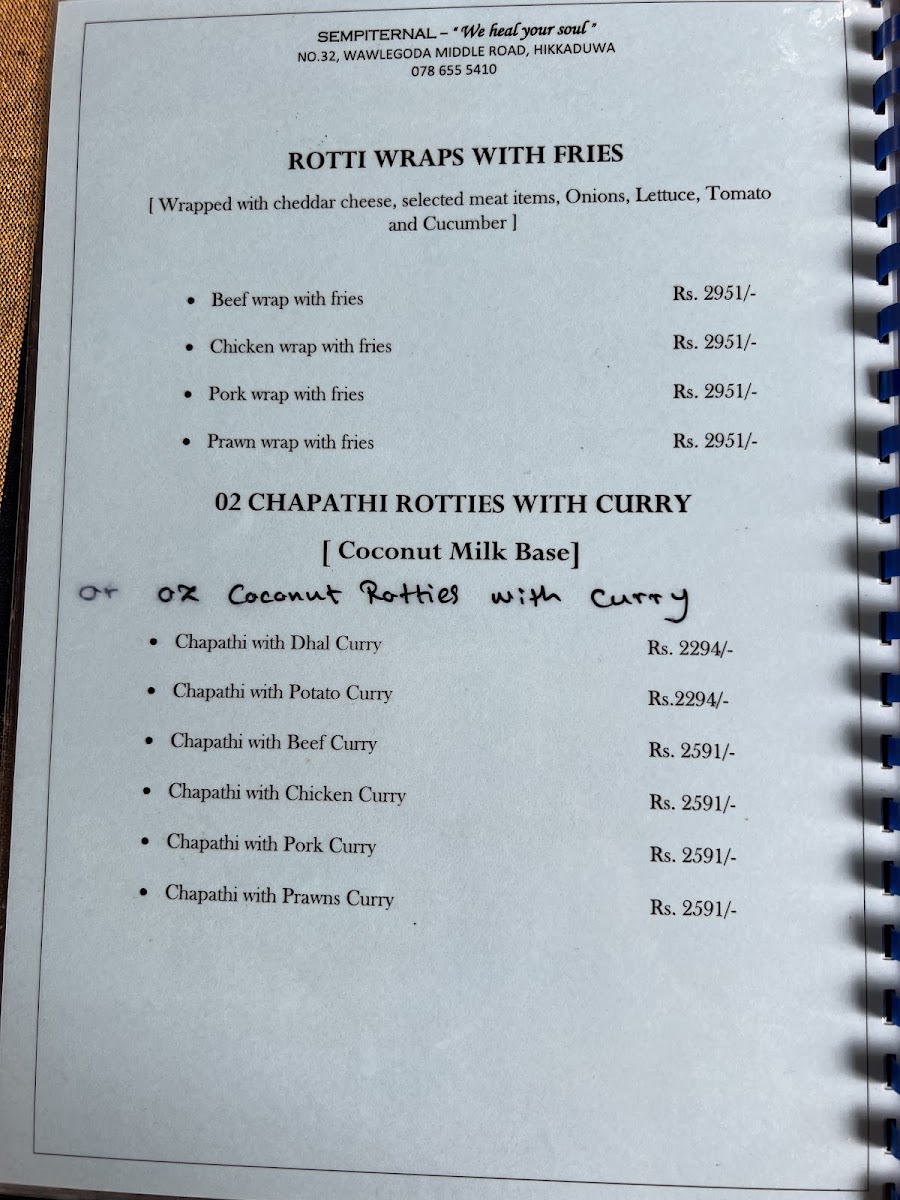 SEMPITERNAL – "We heal your soul"
NO.32, WAWLEGODA MIDDLE ROAD, HIKKADUWA
078 655 5410
ROTTI WRAPS WITH FRIES
[ Wrapped with cheddar cheese, selected meat items, Onions, Lettuce, Tomato
and Cucumber ]
• Beef wrap with fries Rs. 2951/-
• Chicken wrap with fries Rs. 2951/-
• Pork wrap with fries Rs. 2951/-
• Prawn wrap with fries Rs. 2951/-
02 CHAPATHI ROTTIES WITH CURRY
[ Coconut Milk Base]
or 02 Coconut Rotties with curry
• Chapathi with Dhal Curry Rs. 2294/-
• Chapathi with Potato Curry Rs.2294/-
• Chapathi with Beef Curry Rs. 2591/-
• Chapathi with Chicken Curry Rs. 2591/-
• Chapathi with Pork Curry Rs. 2591/-
• Chapathi with Prawns Curry Rs. 2591/-